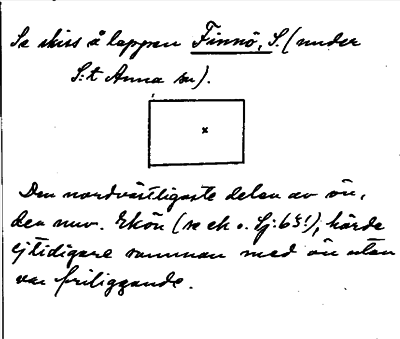 Se skiss å lappen Finnö, S. (under
S:t Anna sn).
x
Den nordvästligaste delen av ön,
den nuv. Ekön (se ek o. Lj: b§!), hörde
ej tidigare samman med ön utan
var friliggande.